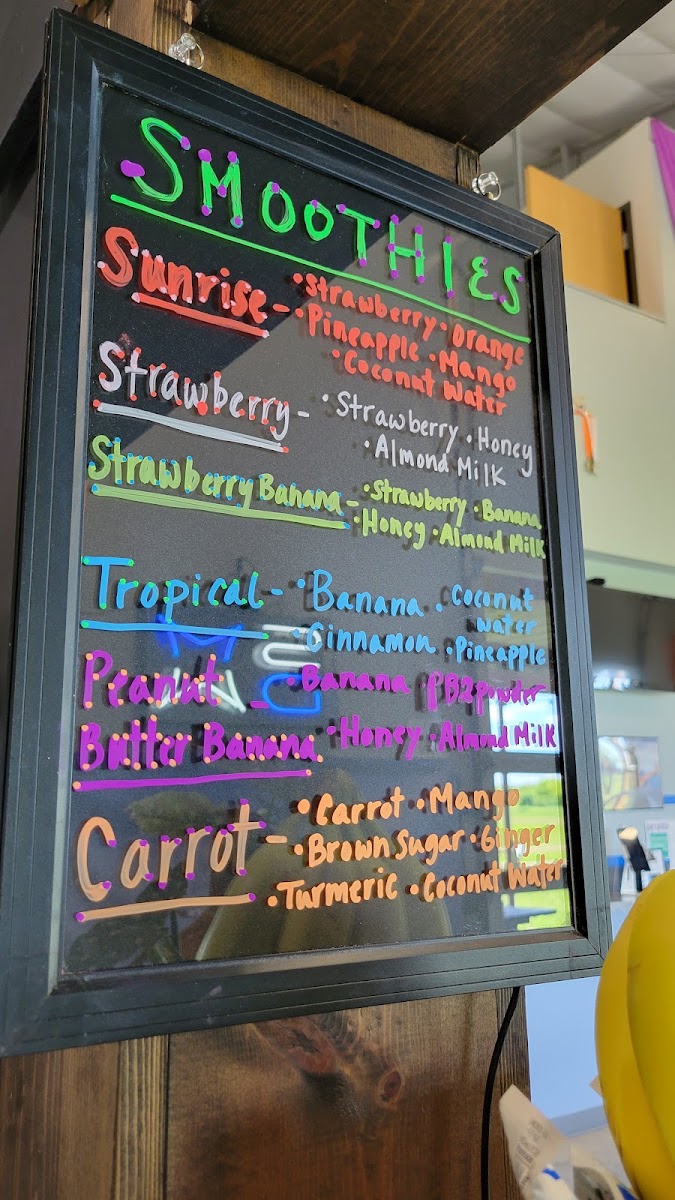 SMOOTHIES
Sunrise - • Strawberry • Orange
• Pineapple • Mango
• Coconut Water
Strawberry - • Strawberry • Honey
• Almond Milk
Strawberry Banana - • Strawberry • Banana
• Honey • Almond Milk
Tropical - • Banana • Coconut
water
• Cinnamon • Pineapple
Peanut - • Banana PB2 powder
Butter Banana • Honey • Almond Milk
Carrot - • Carrot • Mango
• Brown Sugar • Ginger
• Turmeric • Coconut Water